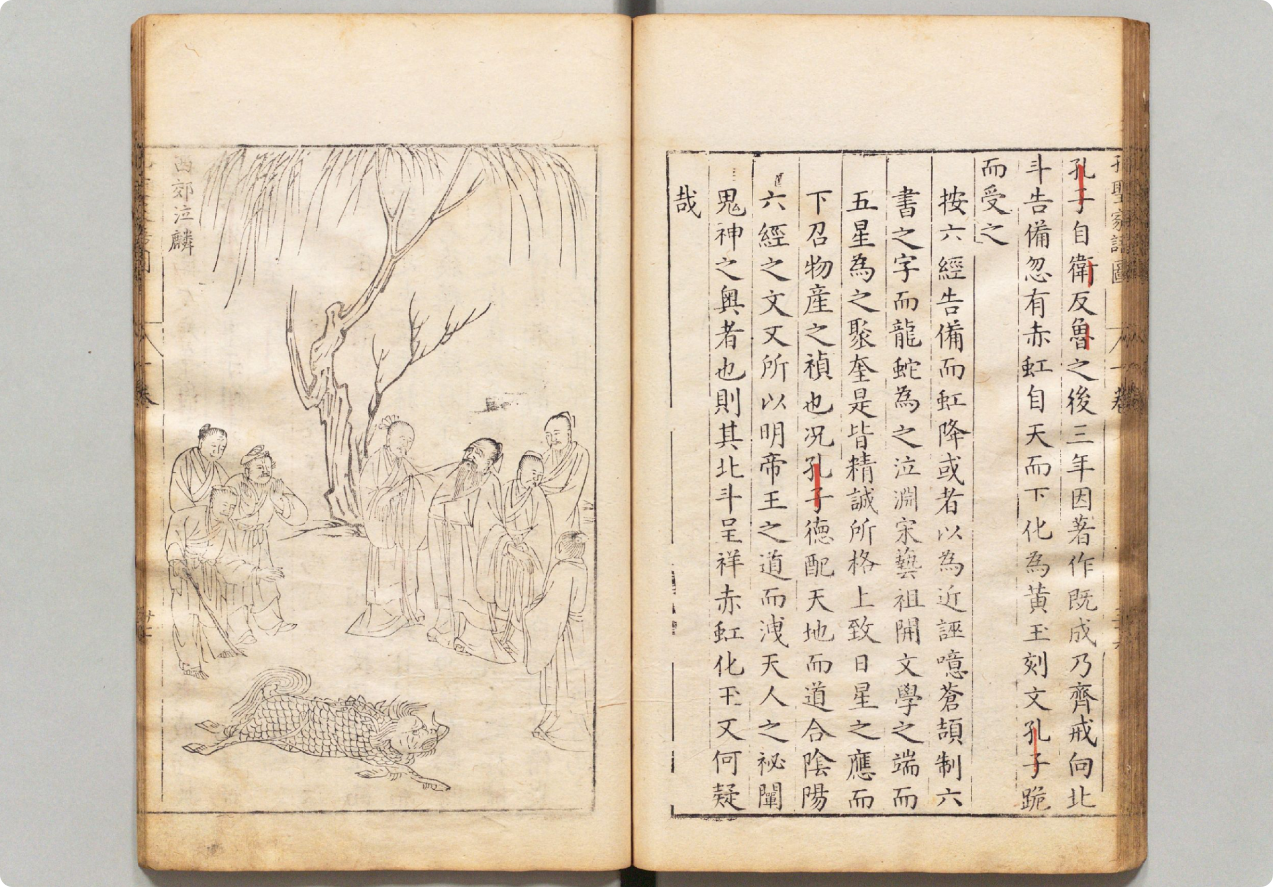 孔聖家語圖
一卷
孔子自衛反魯之後三年因著作既成乃齊戒向北
斗告備忽有赤虹自天而下化為黃玉刻文孔子跪
而受之
按六經告備而虹降或者以為近誣噫蒼頡制六
書之字而龍蛇為之泣淵宋藝祖開文學之端而
五星為之聚奎是皆精誠所格上致日星之應而
下召物產之禎也况孔子德配天地而道合陰陽
六經之文又所以明帝王之道而洩天人之祕闡
鬼神之奧者也則其北斗呈祥赤虹化玉又何疑
哉
西郊泣麟